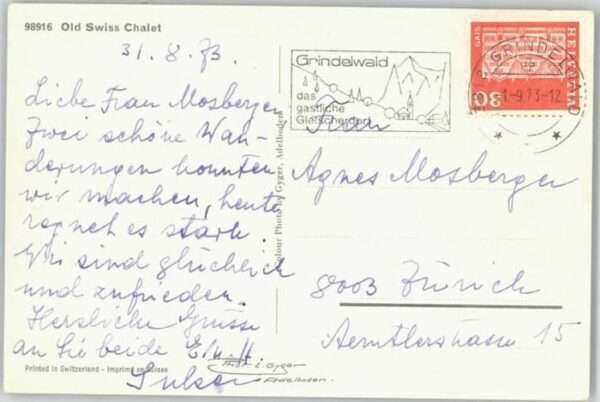 98916 Old Swiss Chalet
31. 8. 73.
Liebe Frau Mosberger
Zwei schöne Wan-
derungen konnten
wir machen, heute
regnet es stark.
Wir sind glücklich
und zufrieden.
Herzliche Grüsse
an Sie beide
Printed in Switzerland - Imprimé en Suisse
Colour Photo by Gyger, Adelboden
Grindelwald
das
gastliche
Gletscherdorf
GRINDELWALD
1.-9.73-12
HELVETIA
GAIS
30
Frau
Agnes Mosberger
8003 Zürich
Aemtlerstrasse 15
E. Gyger
Adelboden